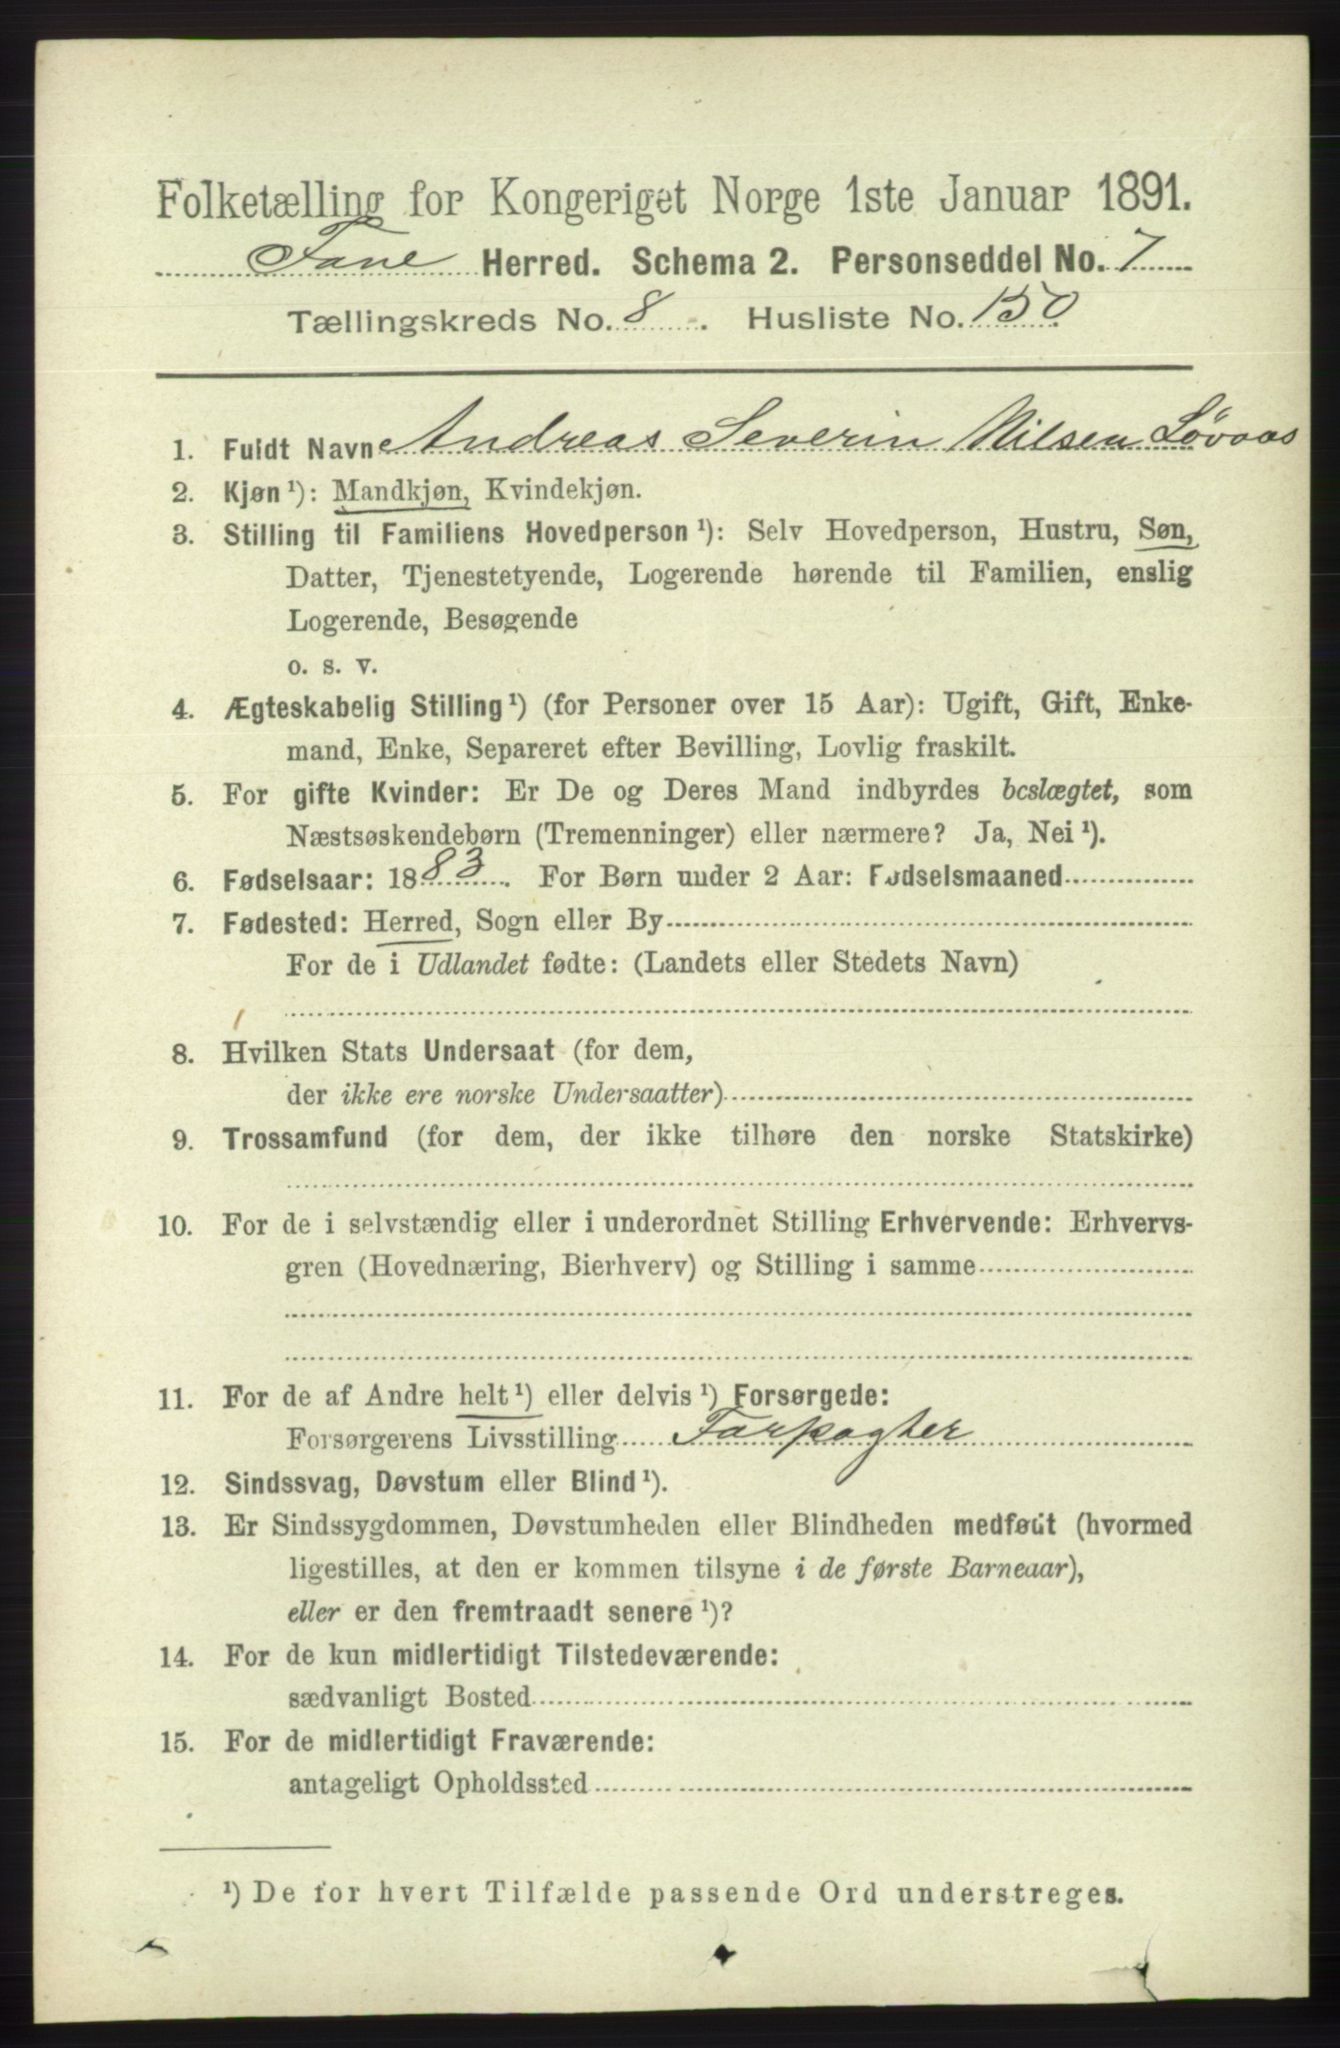 Folketælling for Kongeriget Norge 1ste Januar 1891.
Fane Herred. Schema 2. Personseddel No. 7
Tællingskreds No. 8. Husliste No. 150
1. Fuldt Navn Andreas Severin Nilsen Løvaas
2. Kjøn ¹): Mandkjøn, Kvindekjøn.
3. Stilling til Familiens Hovedperson ¹): Selv Hovedperson, Hustru, Søn,
Datter, Tjenestetyende, Logerende hørende til Familien, enslig
Logerende, Besøgende
o. s. v.
4. Ægteskabelig Stilling ¹) (for Personer over 15 Aar): Ugift, Gift, Enke-
mand, Enke, Separeret efter Bevilling, Lovlig fraskilt.
5. For gifte Kvinder: Er De og Deres Mand indbyrdes beslægtet, som
Næstsøskendebørn (Tremenninger) eller nærmere? Ja, Nei ¹).
6. Fødselsaar: 1883. For Børn under 2 Aar: Fødselsmaaned
7. Fødested: Herred, Sogn eller By
For de i Udlandet fødte: (Landets eller Stedets Navn)
8. Hvilken Stats Undersaat (for dem,
der ikke ere norske Undersaatter)
9. Trossamfund (for dem, der ikke tilhøre den norske Statskirke)
10. For de i selvstændig eller i underordnet Stilling Erhvervende: Erhvervs-
gren (Hovednæring, Bierhverv) og Stilling i samme
11. For de af Andre helt ¹) eller delvis ¹) Forsørgede:
Forsørgerens Livsstilling Forpagter
12. Sindssvag, Døvstum eller Blind ¹).
13. Er Sindssygdommen, Døvstumheden eller Blindheden medfødt (hvormed
ligestilles, at den er kommen tilsyne i de første Barneaar),
eller er den fremtraadt senere ¹)?
14. For de kun midlertidigt Tilstedeværende:
sædvanligt Bosted
15. For de midlertidigt Fraværende:
antageligt Opholdssted
¹) De for hvert Tilfælde passende Ord understreges.